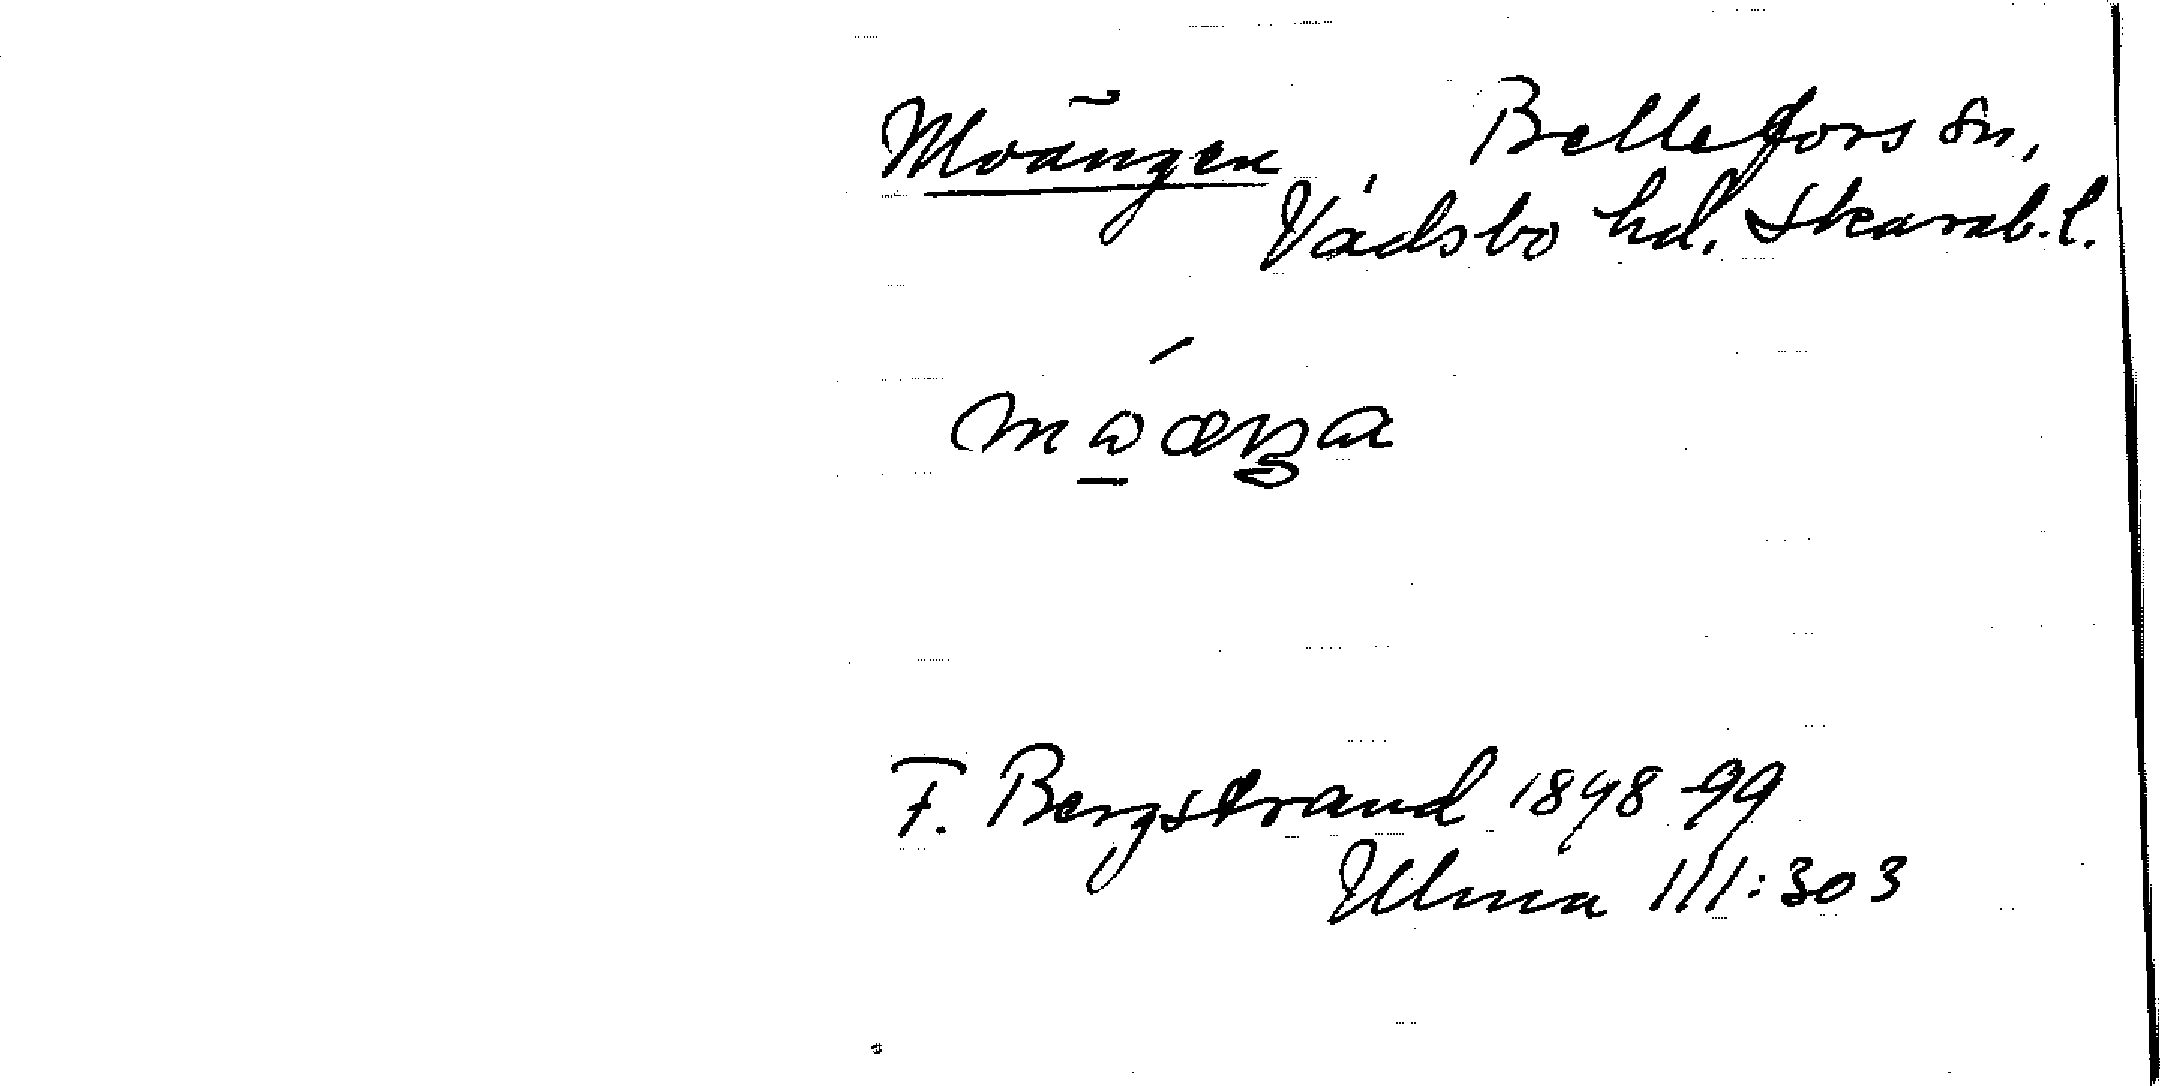 Moängen, Bellefors sn,
Vadsbo hd. Skarab.l.
F. Bergstrand 1898-99
Ulma 111:303